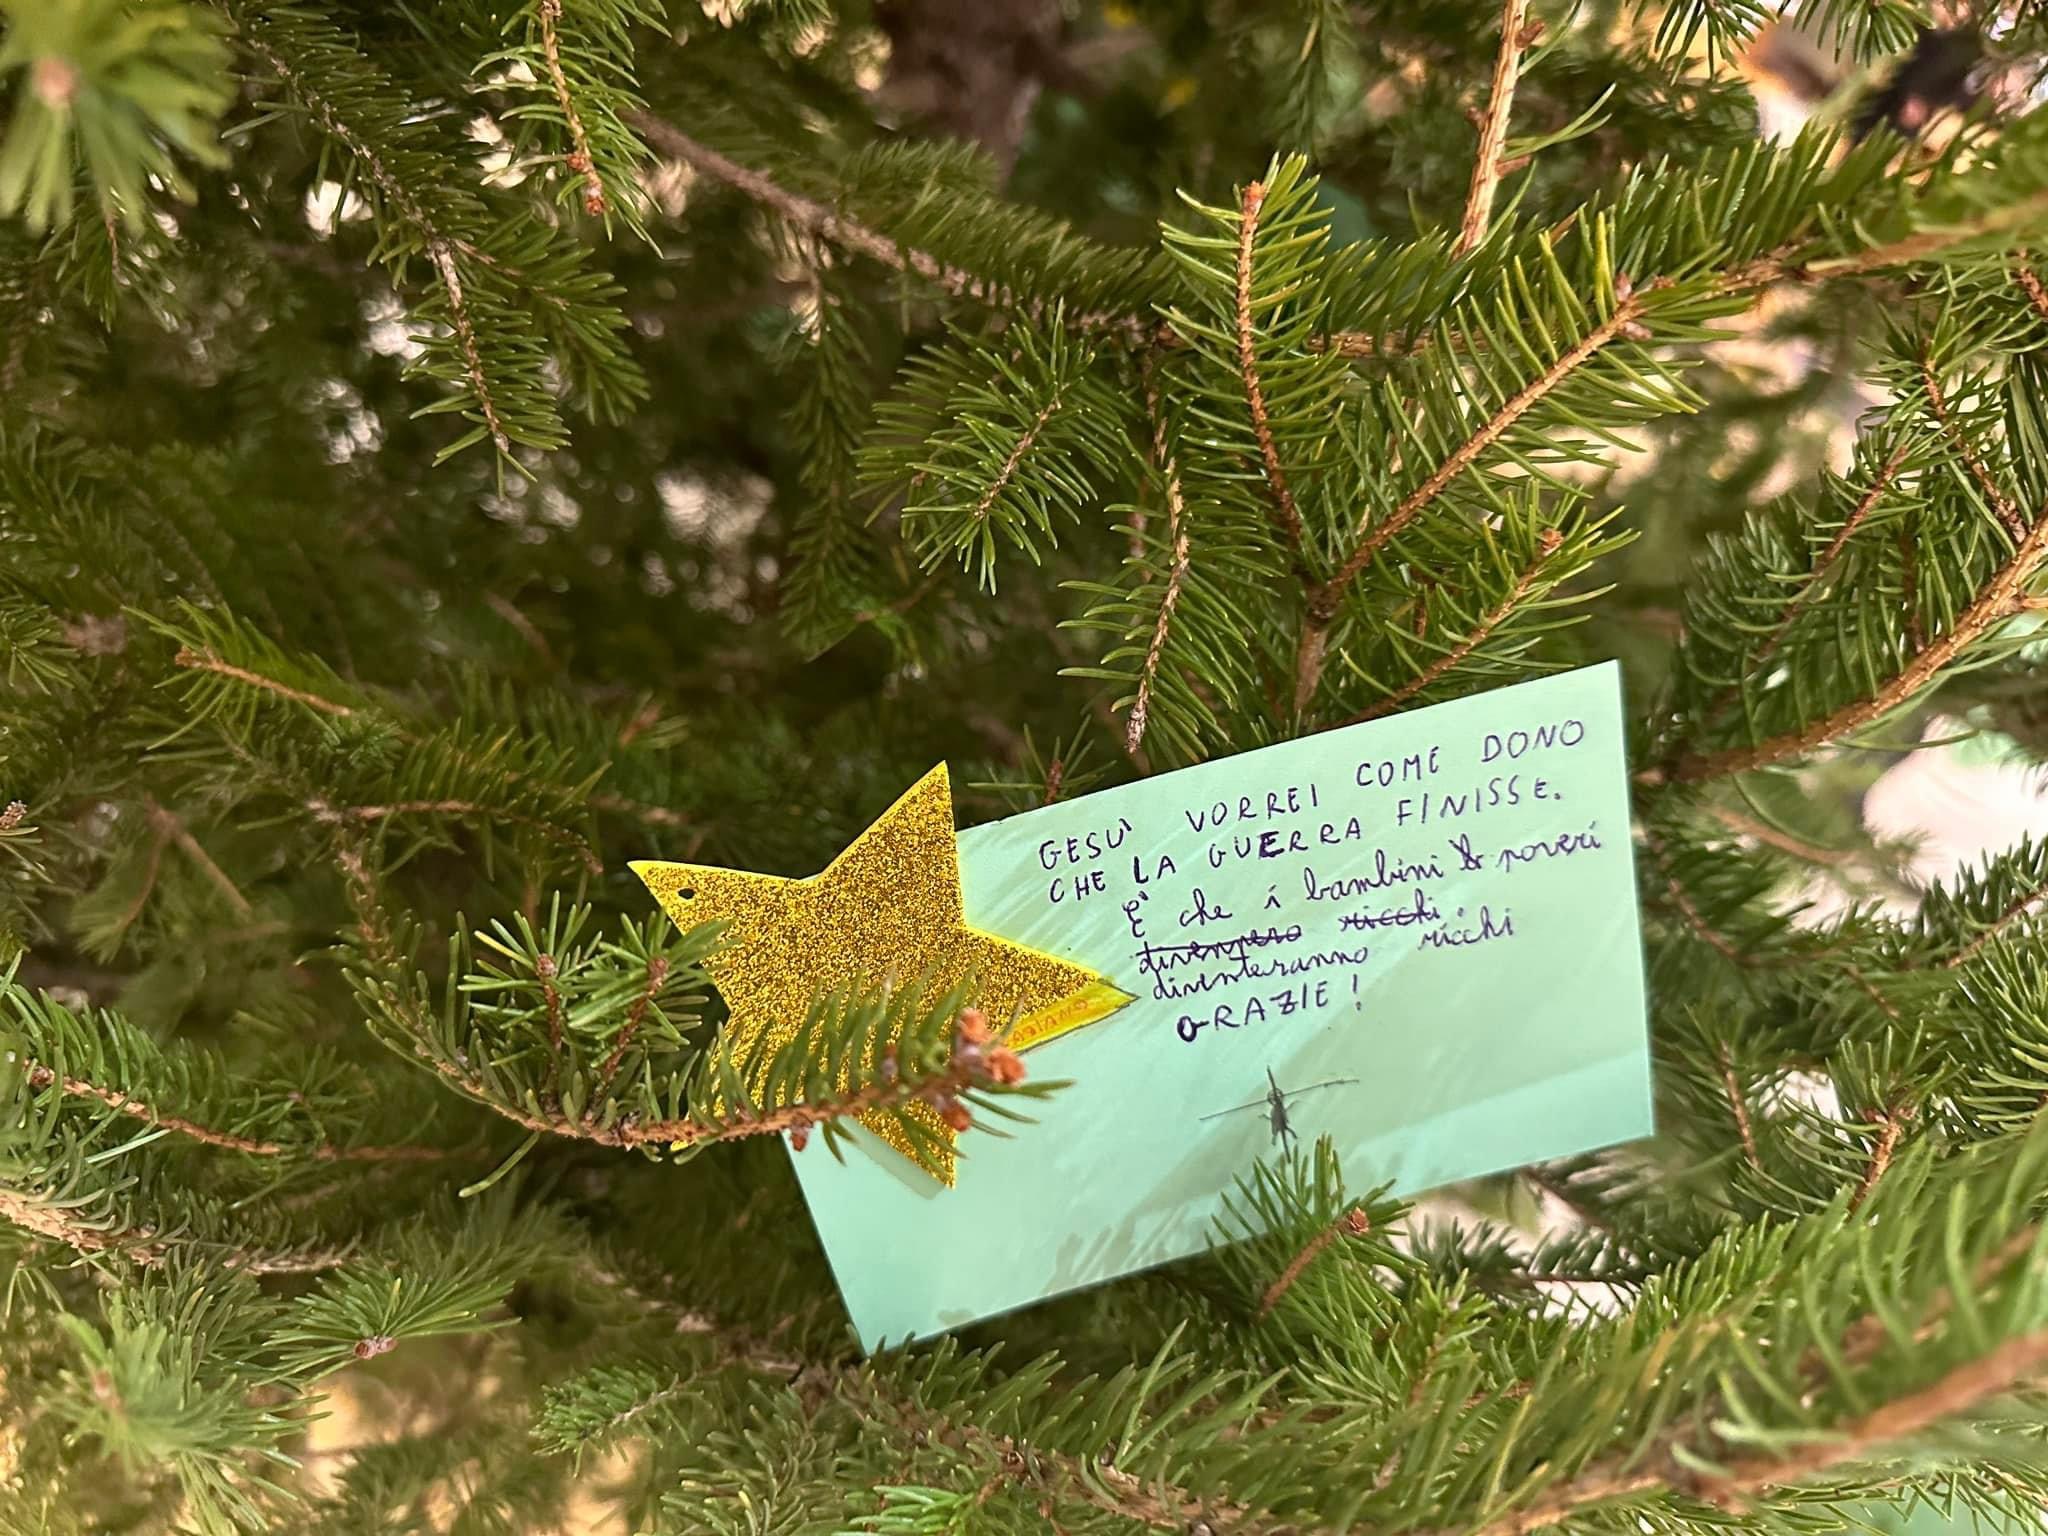 GESU' VORREI COME DONO
CHE LA GUERRA FINISSE.
E' che i bambini poveri
divempero ricchi.
diventeranno ricchi
GRAZIE!